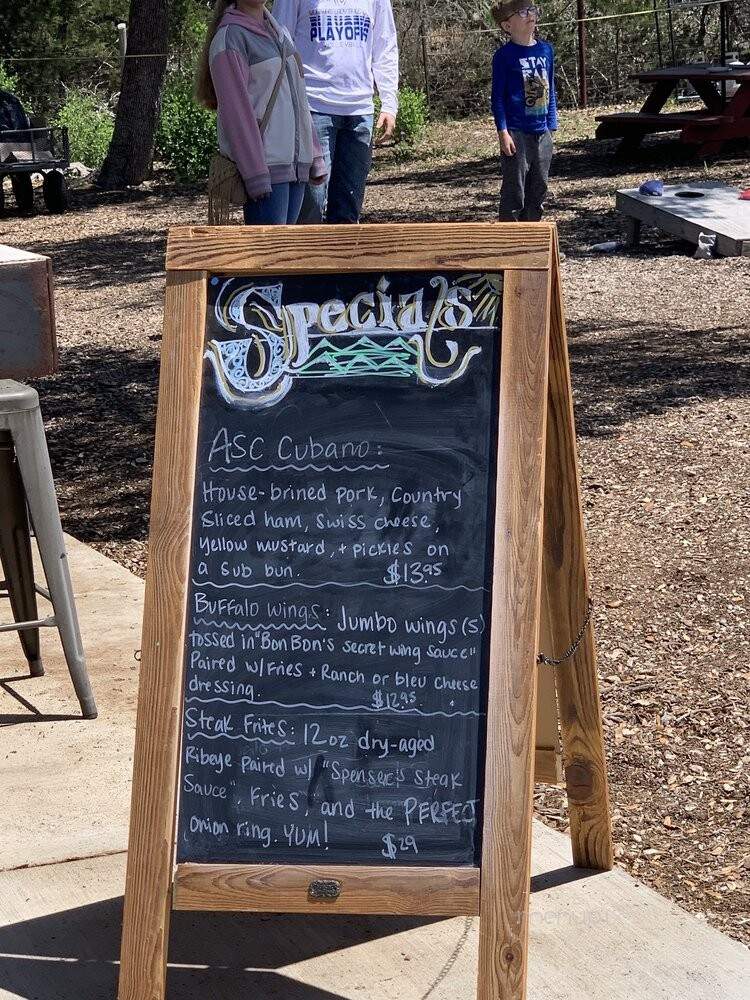 PLAYOFFS
VOLLEYBALL
STAY
Specials
ASC Cubano:
House-brined pork, Country
Sliced ham, Swiss cheese,
yellow mustard, + pickles on
a sub bun. $13.95
Buffalo wings: Jumbo wings (5)
tossed in "BonBon's secret wing sauce"
Paired w/Fries + Ranch or bleu cheese
dressing. $12.95
Steak Frites: 12oz dry-aged
Ribeye paired w/ "Spenser's Steak
Sauce", Fries, and the PERFECT
onion ring. YUM! $29